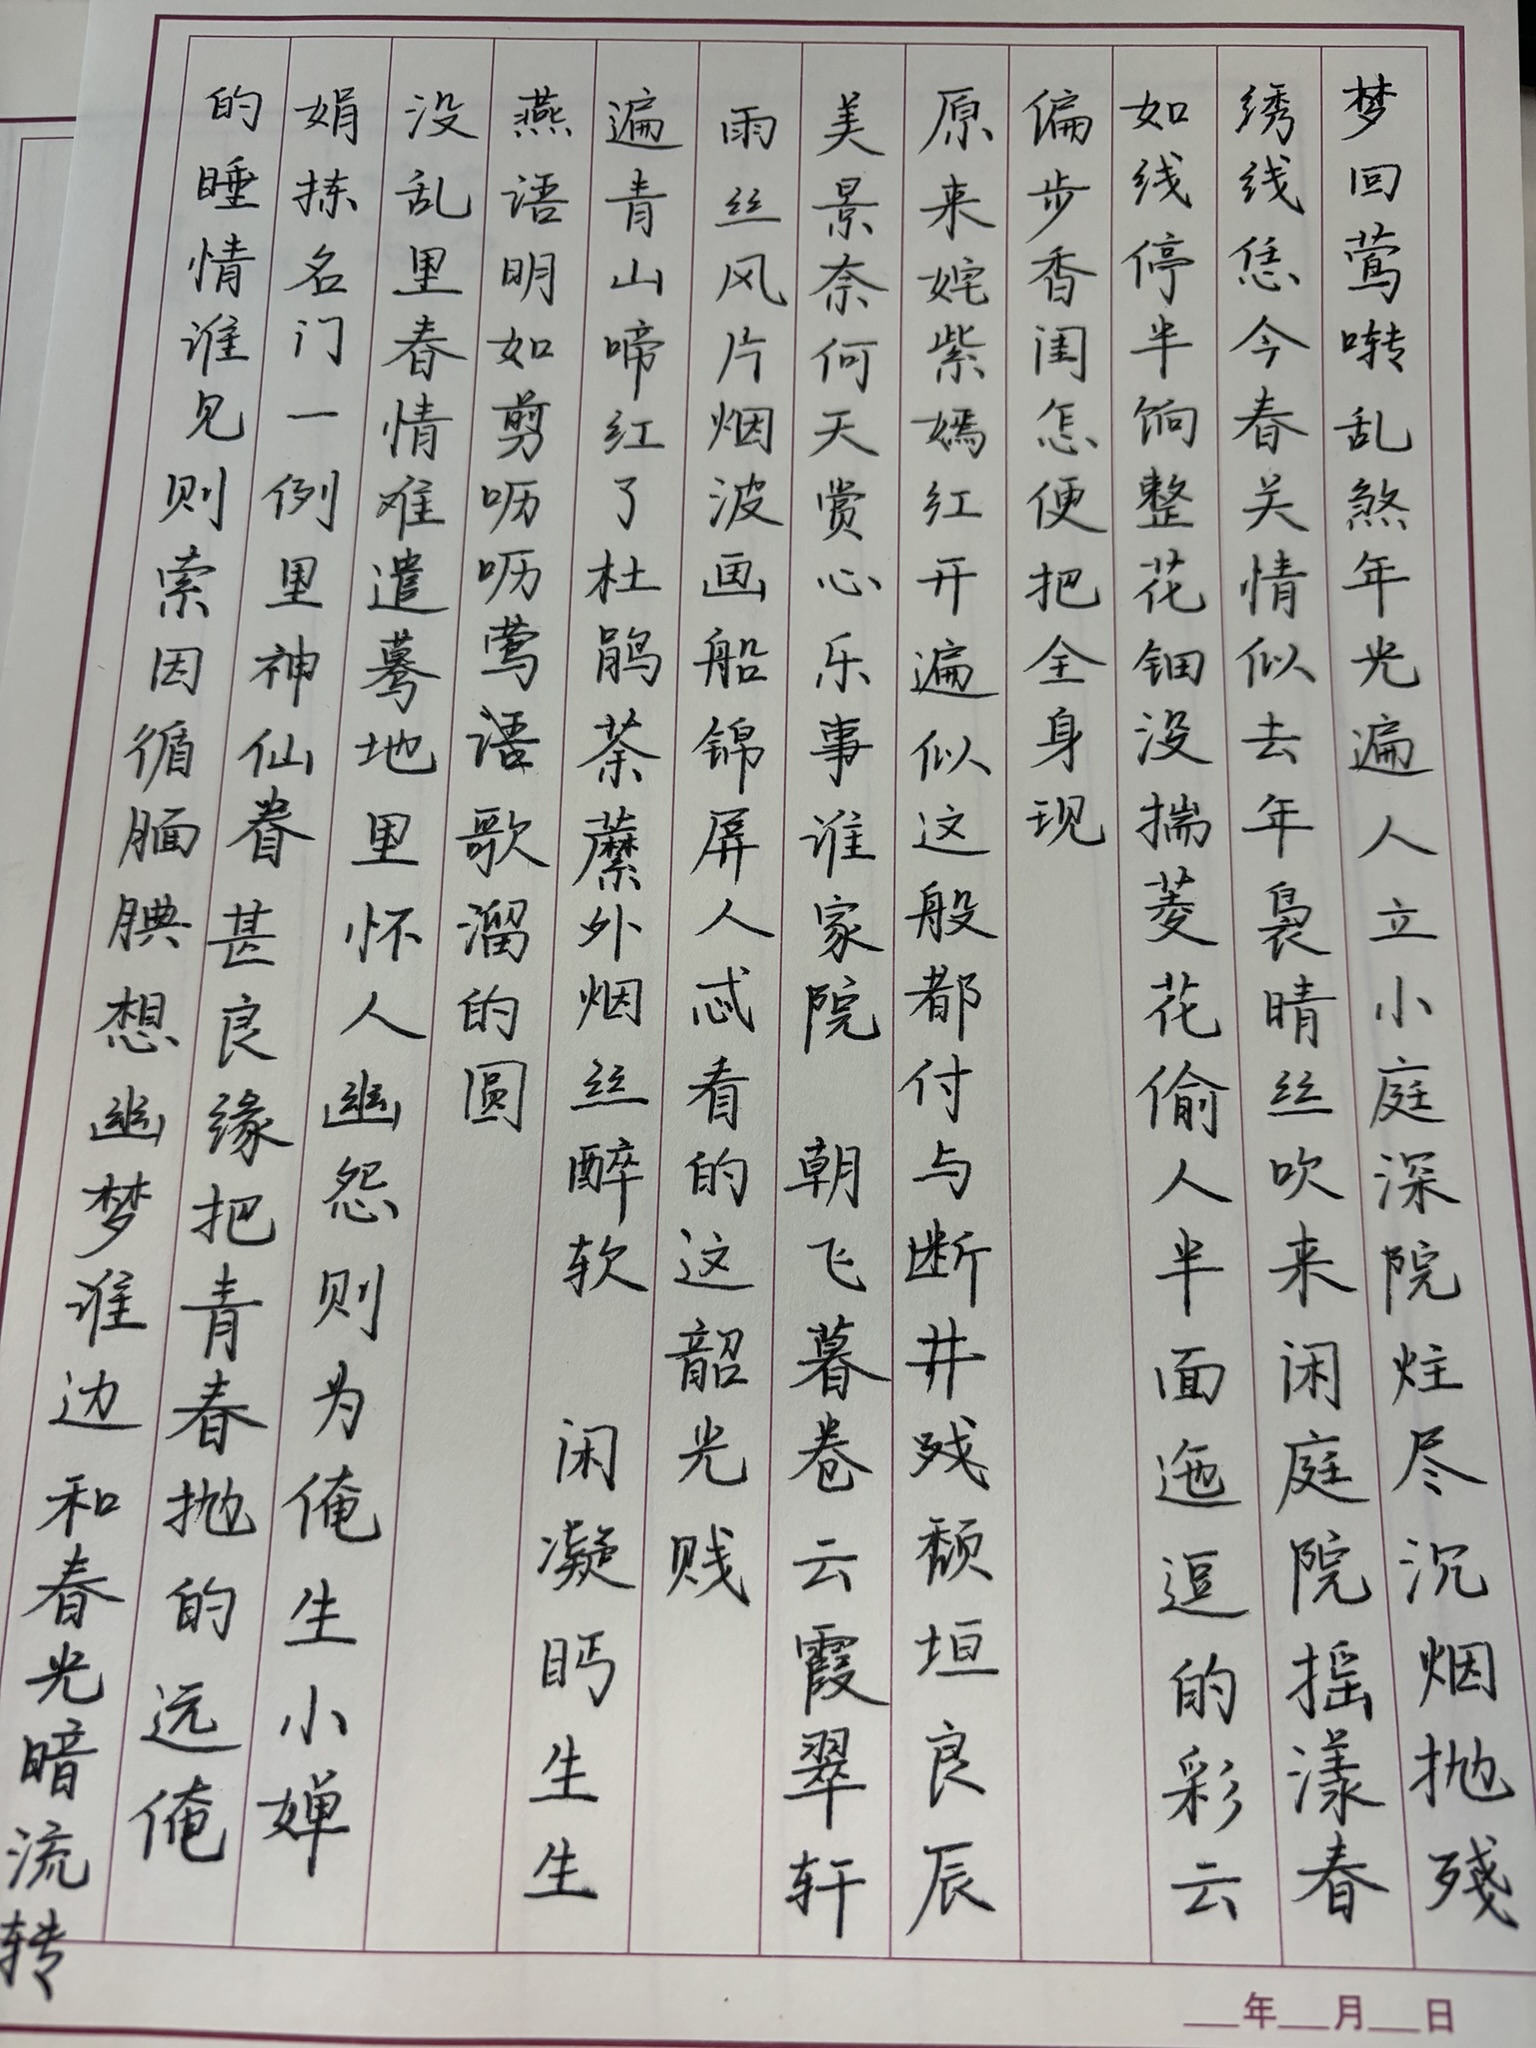 梦回莺啭乱煞年光遍人立小庭深院炷尽沉烟抛残
绣线恁今春关情似去年袅晴丝吹来闲庭院摇漾春
如线停半饷整花钿没揣菱花偷人半面迤逗的彩云
偏步香闺怎便把全身现
原来姹紫嫣红开遍似这般都付与断井残颓垣良辰
美景奈何天赏心乐事谁家院 朝飞暮卷云霞翠轩
雨丝风片烟波画船锦屏人忒看的这韶光贱
遍青山啼红了杜鹃荼蘼外烟丝醉软 闲凝眄生生
燕语明如剪呖呖莺语歌溜的圆
没乱里春情难遣蓦地里怀人幽怨则为俺生小婵
娟拣名门一例里神仙眷甚良缘把青春抛的远俺
的睡情谁见则索因循腼腆想幽梦谁边和春光暗流转
年 月 日